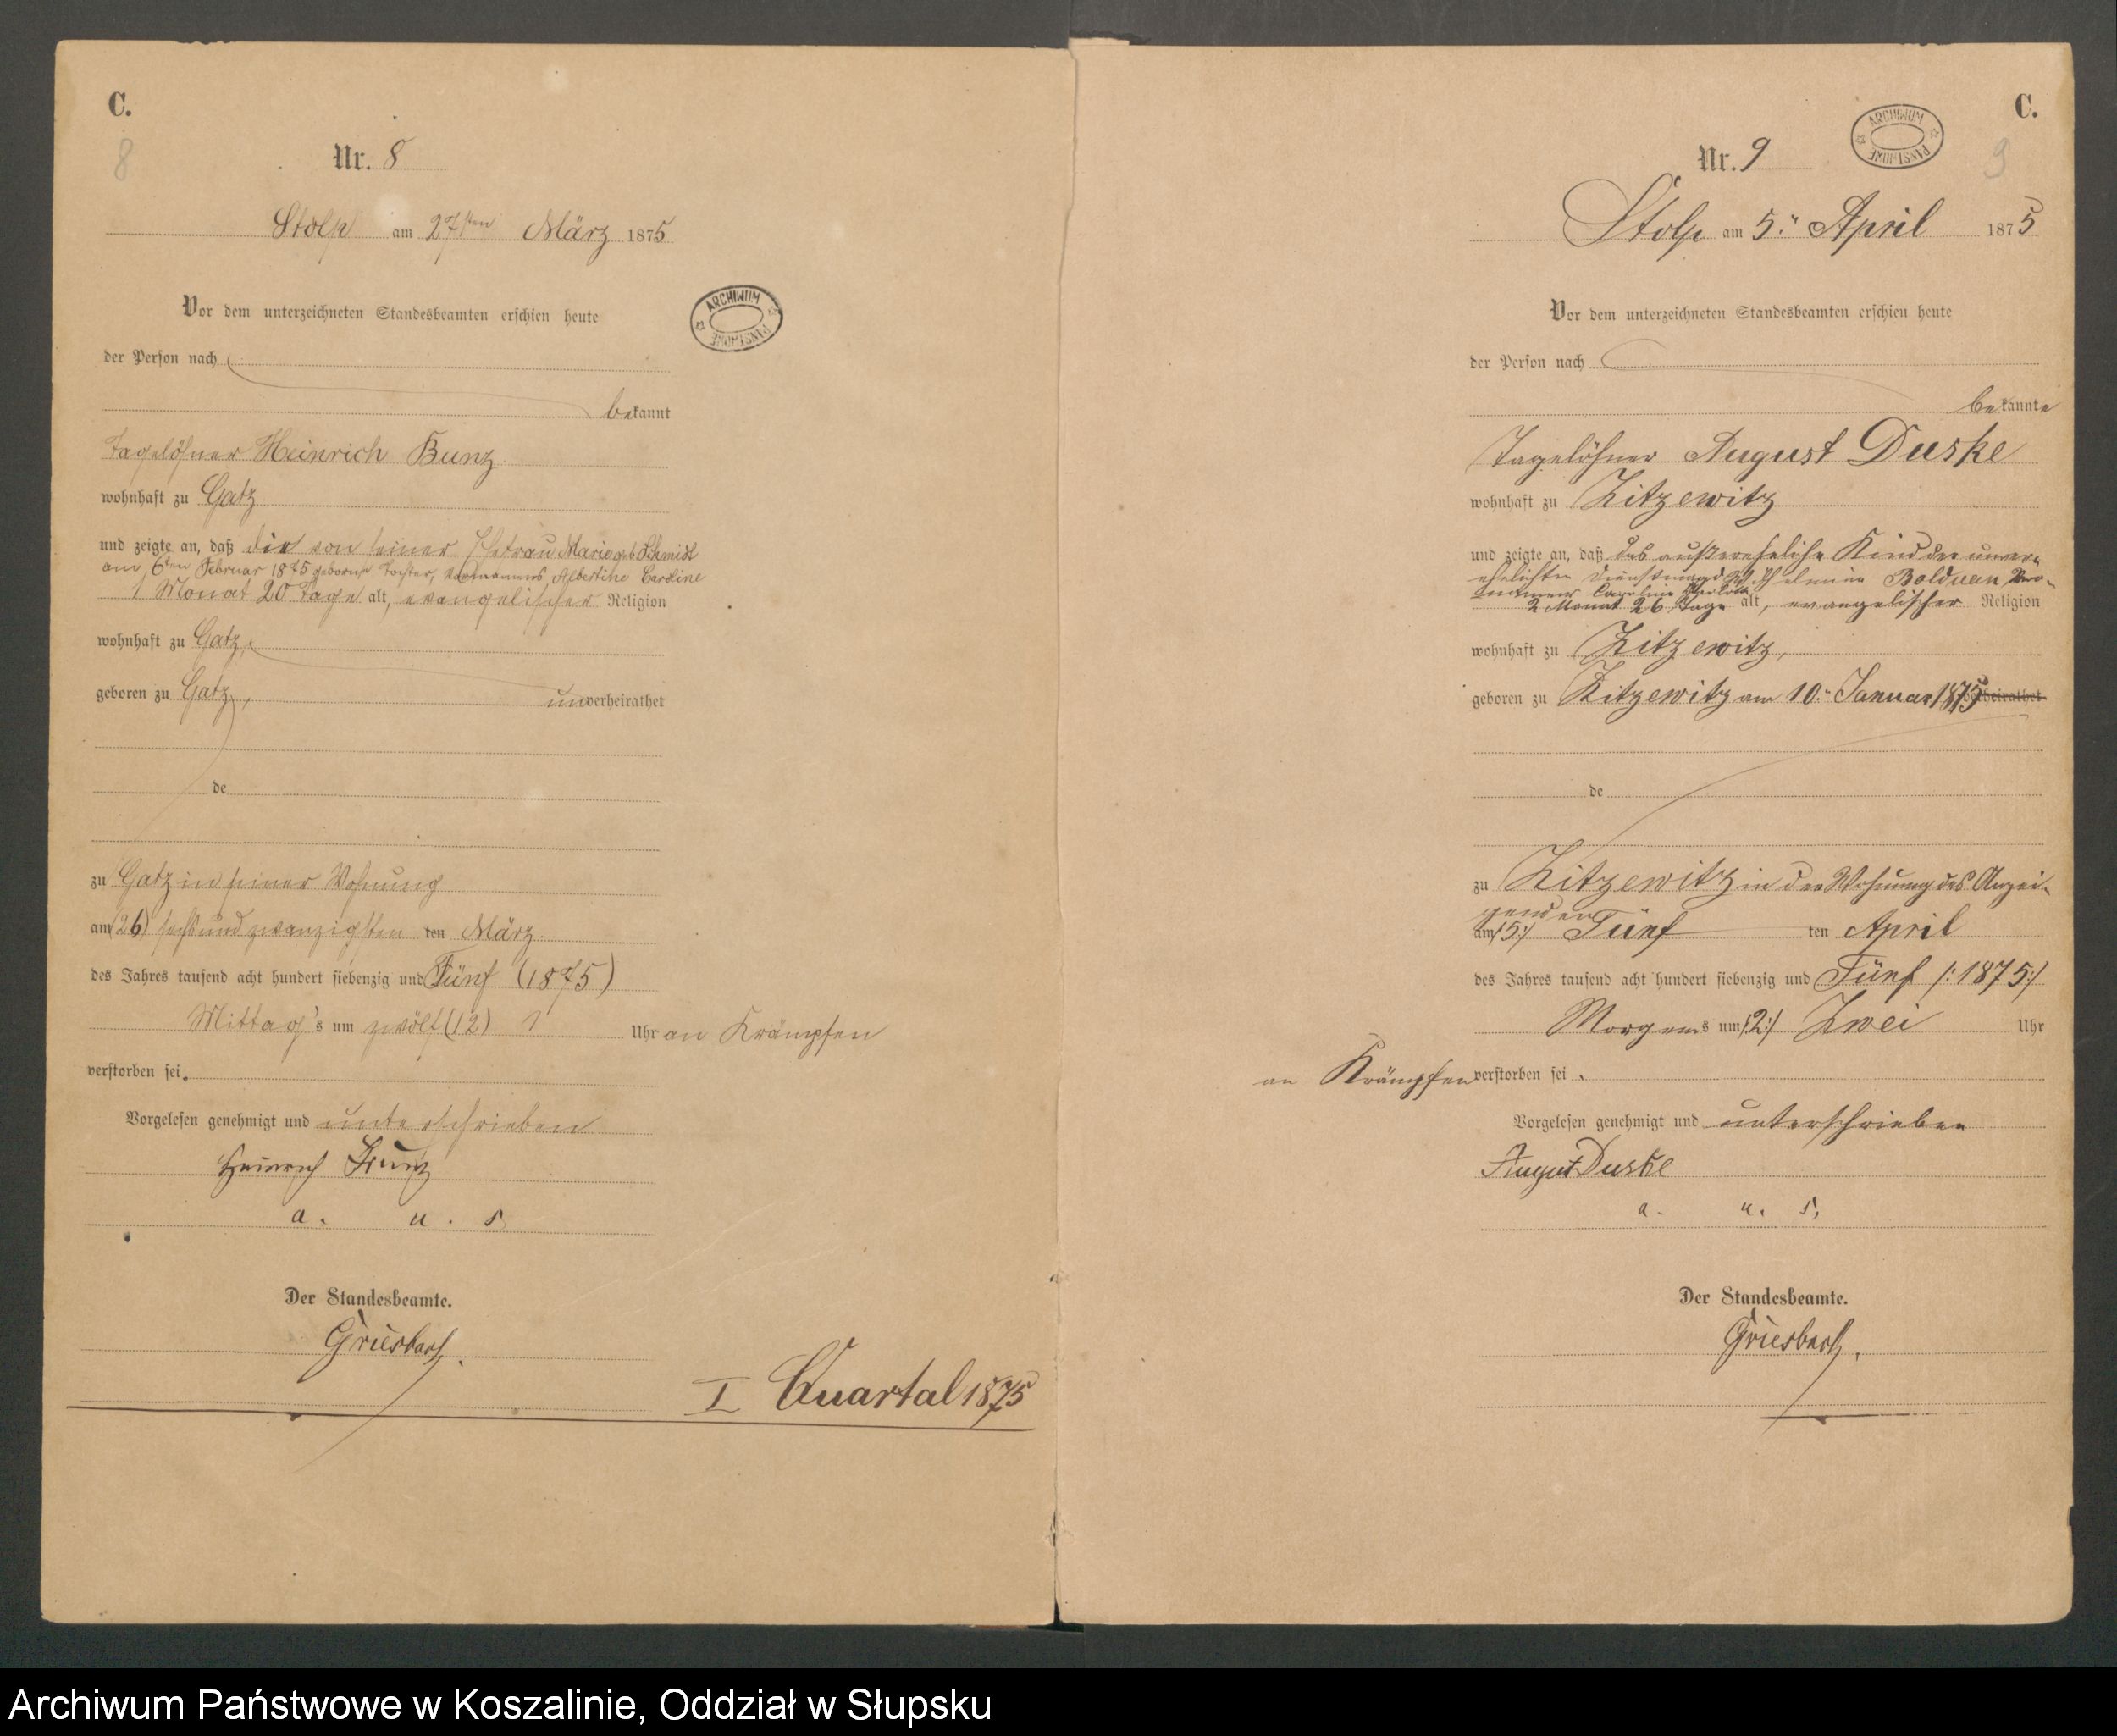 C.
8
Nr. 8
Stolp am 27sten März 1875
ARCHIWUM PAŃSTWOWE
Vor dem unterzeichneten Standesbeamten erschien heute
der Person nach
bekannt
Tagelöhner Heinrich Bunz
wohnhaft zu Gatz
und zeigte an, daß die von seiner Ehefrau Marie geb. Schmidt
am 6ten Februar 1875 geborne Tochter, Vornamens Albertine Caroline
1 Monat 20 Tage alt, evangelischer Religion
wohnhaft zu Gatz,
geboren zu Gatz, unverheirathet
de
zu Gatz in seiner Wohnung
am (26) sechsundzwanzigsten ten März
des Jahres tausend acht hundert siebenzig und Fünf (1875)
Mittag's um zwölf (12) Uhr an Krämpfen
verstorben sei.
Vorgelesen genehmigt und unterschrieben
Heinrich
a. u. s.
Der Standesbeamte.
Griesbach.
I Quartal 1875
C.
9
Nr. 9
ARCHIWUM PAŃSTWOWE
Stolp am 5. April 1875
Vor dem unterzeichneten Standesbeamten erschien heute
der Person nach
bekannte
Tagelöhner August Duske
wohnhaft zu Zitzewitz
und zeigte an, daß das außereheliche Kind der unver-
ehelichten Dienstmagd Wilhelmine Balduan, Vor-
namens Caroline
2 Monat 26 Tage alt, evangelischer Religion
wohnhaft zu Zitzewitz,
geboren zu Zitzewitz am 10. Januar 1875 verheirathet
de
zu Zitzewitz in der Wohnung des Anzei-
genden
am /:5:/ Fünf ten April
des Jahres tausend acht hundert siebenzig und Fünf /:1875:/
Morgens um /:2:/ Zwei Uhr
an Krämpfen verstorben sei.
Vorgelesen genehmigt und unterschrieben
August Duske
a. u. s.
Der Standesbeamte.
Griesbach.
Archiwum Państwowe w Koszalinie, Oddział w Słupsku